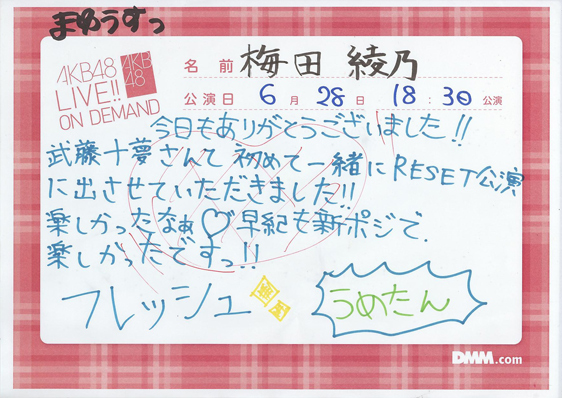 まゆうすっ
AKB48
LIVE!!
ON DEMAND
AKB
48
名前 梅田 綾乃
公演日 6月 28日 18:30公演
今日もありがとうございました!!
武藤十夢さんて 初めて一緒にRESET公演
に出させていただきました!!
楽しかったなぁ♡早紀も新ポジで、
楽しかったですっ!!
フレッシュ
うめたん
DMM.com